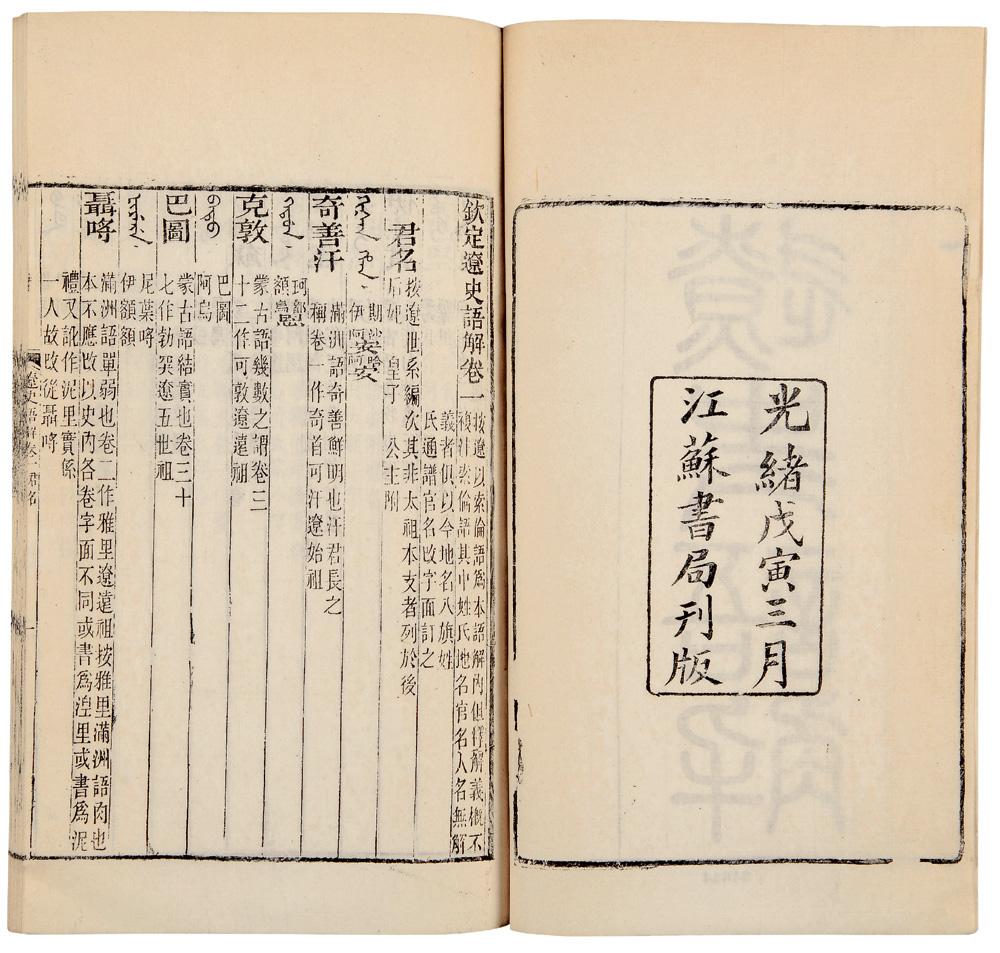 光緒戊寅三月
江蘇書局刊版
欽定遼史語解卷一
按遼以索倫語爲本語解內但釋解義概不
複註索倫語其中姓氏地名官名人名無解
義者俱以今地名八旗姓
氏通譜官名改字面訂之
君名
按遼世系編次其非太祖本支者列於後
后妃 皇子 公主附
奇善汗
滿洲語奇善鮮明也汗君長之
稱卷一作奇首可汗遼始祖
克敦
蒙古語幾數之謂卷三
十二作可敦遼遠祖
巴圖
阿烏
巴圖
蒙古語結實也卷三十
七作勃突遼五世祖
尼葉哷
伊額額
聶哷
滿洲語單弱也卷二作雅里遼遠祖按雅里滿洲語肉也
本不應改以史內各卷字面不同或書爲湼里或書爲泥
禮又訛作泥里實係
一人故改從聶哷
遼史語解卷一 君名 一